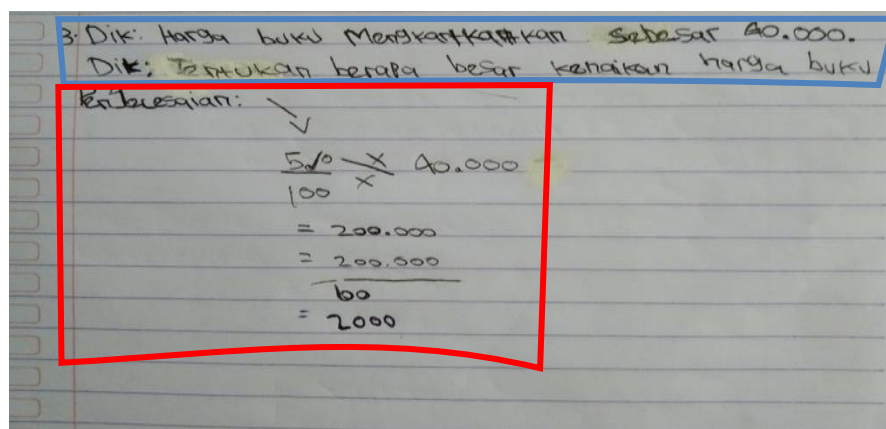 3. Dik: Harga buku Mengkartkatkan sebesar 40.000.
Dik: Tentukan berapa besar kenaikan harga buku
Penyelesaian:
5% x 40.000
100 x
= 200.000
= 200.000
60
= 2000